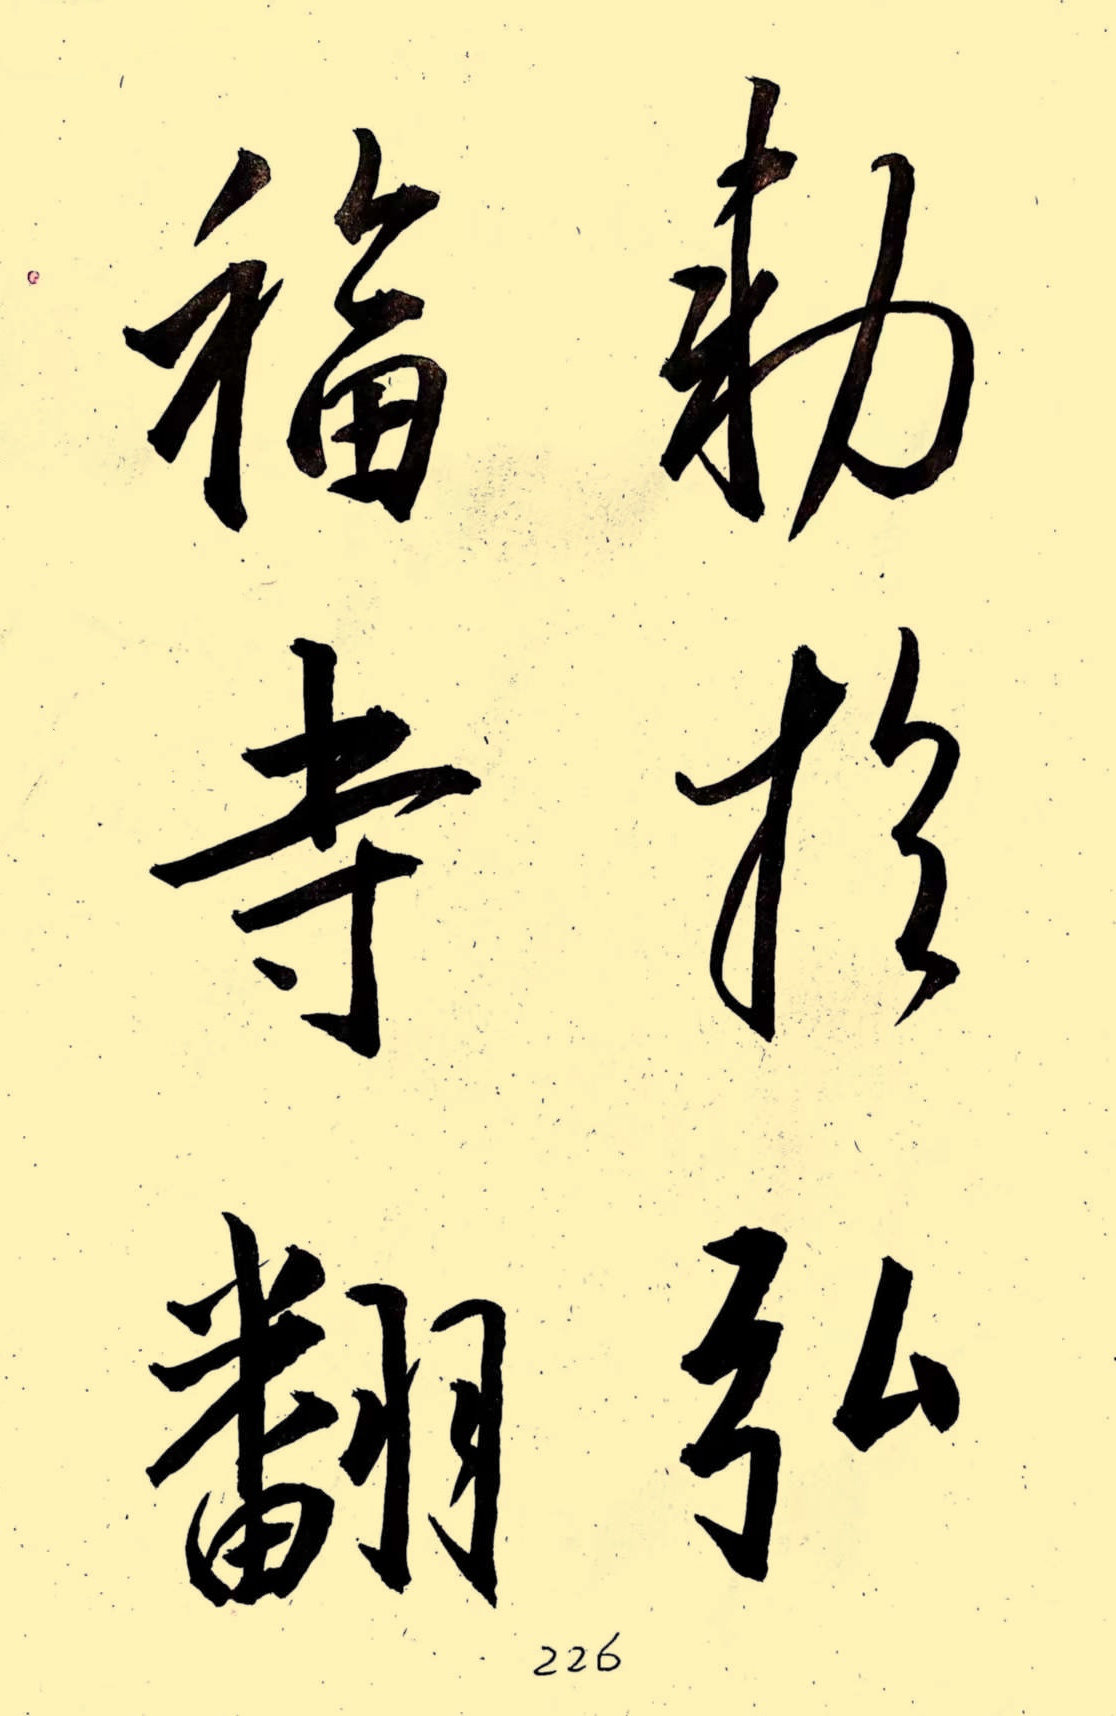 勅於弘
福寺翻
226